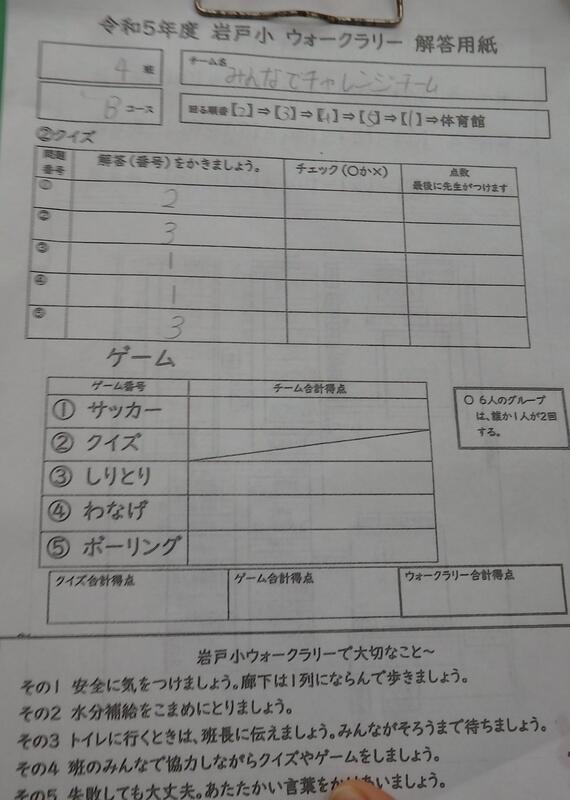 令和5年度 岩戸小 ウォークラリー 解答用紙
4 班
チーム名
みんなでチャレンジチーム
B コース
回る順番【2】⇒【3】⇒【4】⇒【5】⇒【1】⇒体育館
②クイズ
問題番号 解答(番号)をかきましょう。 チェック(○か×) 点数 最後に先生がつけます
① 2
② 3
③ 1
④ 1
⑤ 3
ゲーム
ゲーム番号 チーム合計得点
① サッカー
② クイズ
③ しりとり
④ わなげ
⑤ ボーリング
○ 6人のグループ
は、誰か1人が2回
する。
クイズ合計得点 ゲーム合計得点 ウォークラリー合計得点
岩戸小ウォークラリーで大切なこと~
その1 安全に気をつけましょう。廊下は1列にならんで歩きましょう。
その2 水分補給をこまめにとりましょう。
その3 トイレに行くときは、班長に伝えましょう。みんながそろうまで待ちましょう。
その4 班のみんなで協力しながらクイズやゲームをしましょう。
その5 失敗しても大丈夫。あたたかい言葉をかけあいましょう。